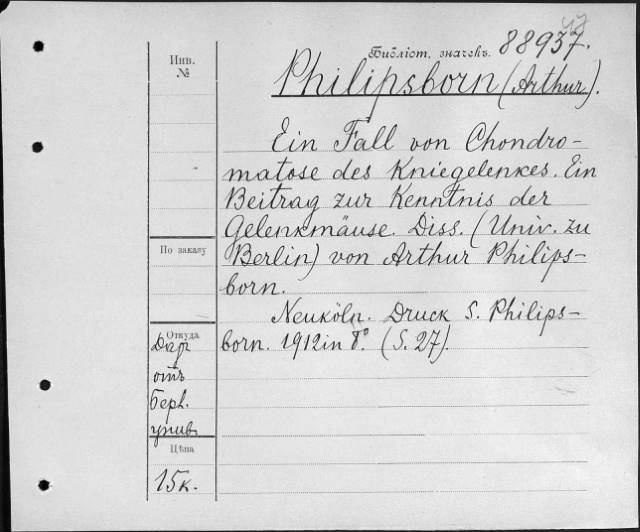 Инв. №
Библіот. значекъ 88937.
Philipsborn (Arthur).
Ein Fall von Chondro-
matose des Kniegelenkes. Ein
Beitrag zur Kenntnis der
Gelenkmäuse. Diss. (Univ. zu
Berlin) von Arthur Philips-
born.
Neukölln. Druck S. Philips-
born. 1912 in 8°. (S. 27).
По заказу
Откуда
Дар
отъ
Берл.
унив.
Цѣна
15к.